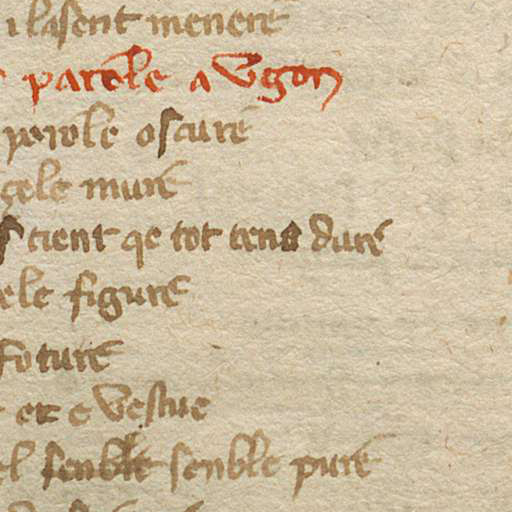 ilasent menere
parole a Vgon
parole oscure
cele mure
tient qe tot tens dure
ele figure
foture
et e vestue
el senble senble pure